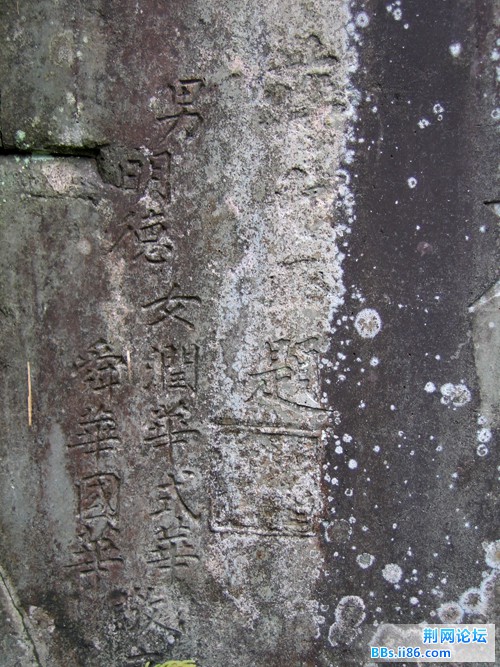 題
男明德女潤華式華
舜華國華
荆网论坛
BBs.ii86.com